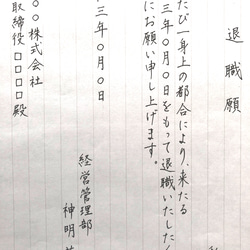 退職願
たび一身上の都合により、来たる
三年〇月〇日をもって退職いたした
にお願い申し上げます。
三年〇月〇日
経営管理部
神明
〇〇株式会社
取締役□□□□殿